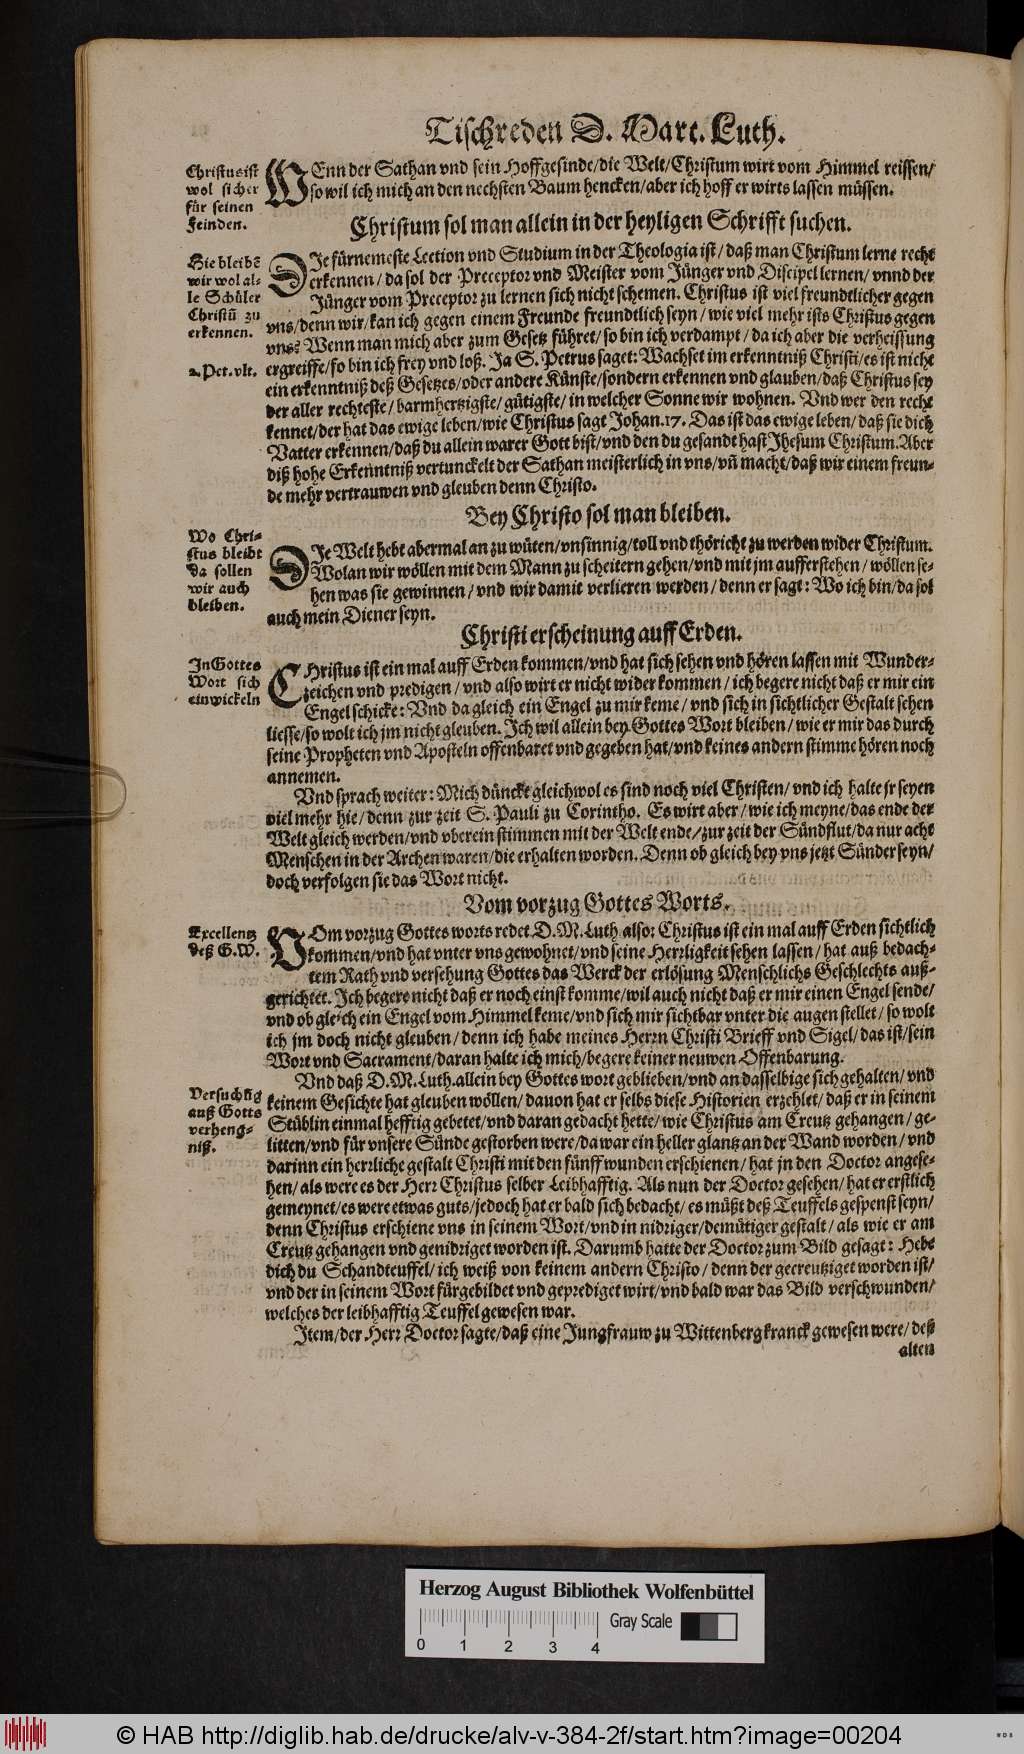 Tischreden D. Mart. Luth.
Christus ist
wol sicher
für seinen
Feinden.
WEnn der Sathan vnd sein Hoffgesinde/die Welt/Christum wirt vom Himmel reissen/
so wil ich mich an den nechsten Baum hencken/aber ich hoff er wirts lassen müssen.
Christum sol man allein in der heyligen Schrifft suchen.
Hie bleibẽ
wir wol al-
le Schüler
Christũ zu
erkennen.
2. Pet. vlt.
DIe fürnemeste Lection vnd Studium in der Theologia ist/ daß man Christum lerne recht
erkennen/ da sol der Preceptor vnd Meister vom Jünger vnd Discipel lernen/ vnnd der
Jünger vom Preceptor zu lernen sich nicht schemen. Christus ist viel freundtlicher gegen
vns/denn wir/kan ich gegen einem Freunde freundtlich seyn/ wie viel mehr ists Christus gegen
vns? Wenn man mich aber zum Gesetz führet/ so bin ich verdampt/ da ich aber die verheissung
ergreiffe/ so bin ich frey vnd loß. Ja S. Petrus saget: Wachset im erkenntniß Christi/ es ist nicht
ein erkenntniß deß Gesetzes/oder andere Künste/sondern erkennen vnd glauben/daß Christus sey
der aller rechteste/ barmhertzigste/ gütigste/ in welcher Sonne wir wohnen. Vnd wer den recht
kennet/der hat das ewige leben/wie Christus sagt Johan. 17. Das ist das ewige leben/ daß sie dich
Vatter erkennen/daß du allein warer Gott bist/vnd den du gesandt hast Jhesum Christum. Aber
diß hohe Erkenntniß vertunckelt der Sathan meisterlich in vns/vñ macht/daß wir einem freun-
de mehr vertrauwen vnd gleuben denn Christo.
Bey Christo sol man bleiben.
Wo Chri-
stus bleibt
da sollen
wir auch
bleiben.
DIe Welt hebt abermal an zu wüten/vnsinnig/toll vnd thöricht zu werden wider Christum.
Wolan wir wöllen mit dem Mann zu scheitern gehen/vnd mit jm aufferstehen/ wöllen se-
hen was sie gewinnen/ vnd wir damit verlieren werden/ denn er sagt: Wo ich bin/da sol
auch mein Diener seyn.
Christi erscheinung auff Erden.
In Gottes
Wort sich
einwickeln
CHristus ist ein mal auff Erden kommen/vnd hat sich sehen vnd hören lassen mit Wunder-
zeichen vnd predigen/ vnd also wirt er nicht wider kommen/ ich begere nicht daß er mir ein
Engel schicke: Vnd da gleich ein Engel zu mir keme/ vnd sich in sichtlicher Gestalt sehen
liesse/so wolt ich jm nicht gleuben. Ich wil allein bey Gottes Wort bleiben/ wie er mir das durch
seine Propheten vnd Aposteln offenbaret vnd gegeben hat/vnd keines andern stimme hören noch
annemen.
Vnd sprach weiter: Mich dünckt gleichwol es sind noch viel Christen/ vnd ich halte jr seyen
viel mehr hie/ denn zur zeit S. Pauli zu Corintho. Es wirt aber/ wie ich meyne/das ende der
Welt gleich werden/vnd vberein stimmen mit der Welt ende/zur zeit der Sündflut/da nur acht
Menschen in der Archen waren/die erhalten worden. Denn ob gleich bey vns jetzt Sünder seyn/
doch verfolgen sie das Wort nicht.
Vom vorzug Gottes Worts.
Excellentz
deß G. W.
VOm vorzug Gottes worts redet D. M. Luth. also: Christus ist ein mal auff Erden sichtlich
kommen/vnd hat vnter vns gewohnet/vnd seine Herrligkeit sehen lassen/ hat auß bedach-
tem Rath vnd versehung Gottes das Werck der erlösung Menschlichs Geschlechts auß-
gerichtet. Ich begere nicht daß er noch einst komme/wil auch nicht daß er mir einen Engel sende/
vnd ob gleich ein Engel vom Himmel keme/vnd sich mir sichtbar vnter die augen stellet/ so wolt
ich jm doch nicht gleuben/ denn ich habe meines Herrn Christi Brieff vnd Sigel/ das ist/sein
Wort vnd Sacrament/daran halte ich mich/begere keiner neuwen Offenbarung.
Versuchũg
auß Gotts
verheng-
niß.
Vnd daß D. M. Luth. allein bey Gottes wort geblieben/vnd an dasselbige sich gehalten/ vnd
keinem Gesichte hat gleuben wöllen/ dauon hat er selbs diese Historien erzehlet/ daß er in seinem
Stüblin einmal hefftig gebetet/vnd daran gedacht hette/ wie Christus am Creutz gehangen/ ge-
litten/vnd für vnsere Sünde gestorben were/da war ein heller glantz an der Wand worden/ vnd
darinn ein herrliche gestalt Christi mit den fünff wunden erschienen/ hat jn den Doctor angese-
hen/ als were es der Herr Christus selber Leibhafftig. Als nun der Doctor gesehen/ hat er erstlich
gemeynet/es were etwas guts/jedoch hat er bald sich bedacht/ es müßt deß Teuffels gespenst seyn/
denn Christus erschiene vns in seinem Wort/vnd in nidriger/demütiger gestalt/ als wie er am
Creutz gehangen vnd genidriget worden ist. Darumb hatte der Doctor zum Bild gesagt: Hebe
dich du Schandteuffel/ ich weiß von keinem andern Christo/ denn der gecreutziget worden ist/
vnd der in seinem Wort fürgebildet vnd geprediget wirt/ vnd bald war das Bild verschwunden/
welches der leibhafftig Teuffel gewesen war.
Item/der Herr Doctor sagte/daß eine Jungfrauw zu Wittenberg kranck gewesen were/ deß
alten
Herzog August Bibliothek Wolfenbüttel
Gray Scale
0 1 2 3 4
© HAB http://diglib.hab.de/drucke/alv-v-384-2f/start.htm?image=00204